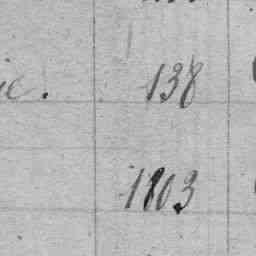 ic. 138
1803